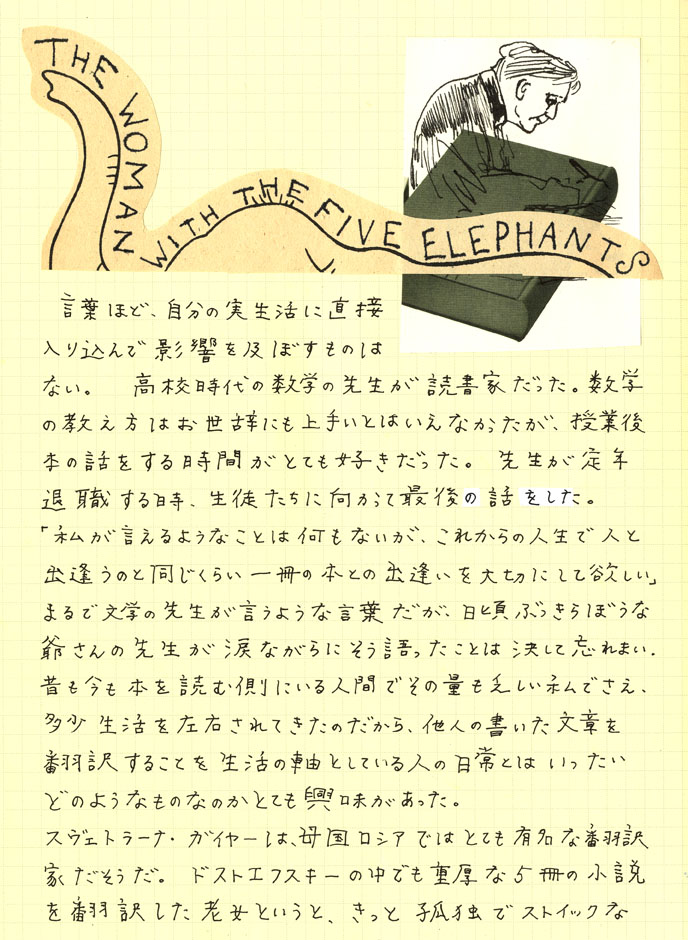 THE WOMAN WITH THE FIVE ELEPHANTS
言葉ほど、自分の実生活に直接
入り込んで影響を及ぼすものは
ない。 高校時代の数学の先生が読書家だった。数学
の教え方はお世辞にも上手いとはいえなかったが、授業後
本の話をする時間がとても好きだった。 先生が定年
退職する時、生徒たちに向かって最後の話をした。
「私が言えるようなことは何もないが、これからの人生で人と
出逢うのと同じくらい一冊の本との出逢いを大切にして欲しい」
まるで文学の先生が言うような言葉だが、日頃ぶっきらぼうな
爺さんの先生が涙ながらにそう語ったことは決して忘れまい。
昔も今も本を読む側にいる人間でその量も乏しい私でさえ、
多少生活を左右されてきたのだから、他人の書いた文章を
翻訳することを生活の軸としている人の日常とはいったい
どのようなものなのかとても興味があった。
スヴェトラーナ・ガイヤーは、母国ロシアではとても有名な翻訳
家だそうだ。 ドストエフスキーの中でも重厚な5冊の小説
を翻訳した老女というと、きっと孤独でストイックな